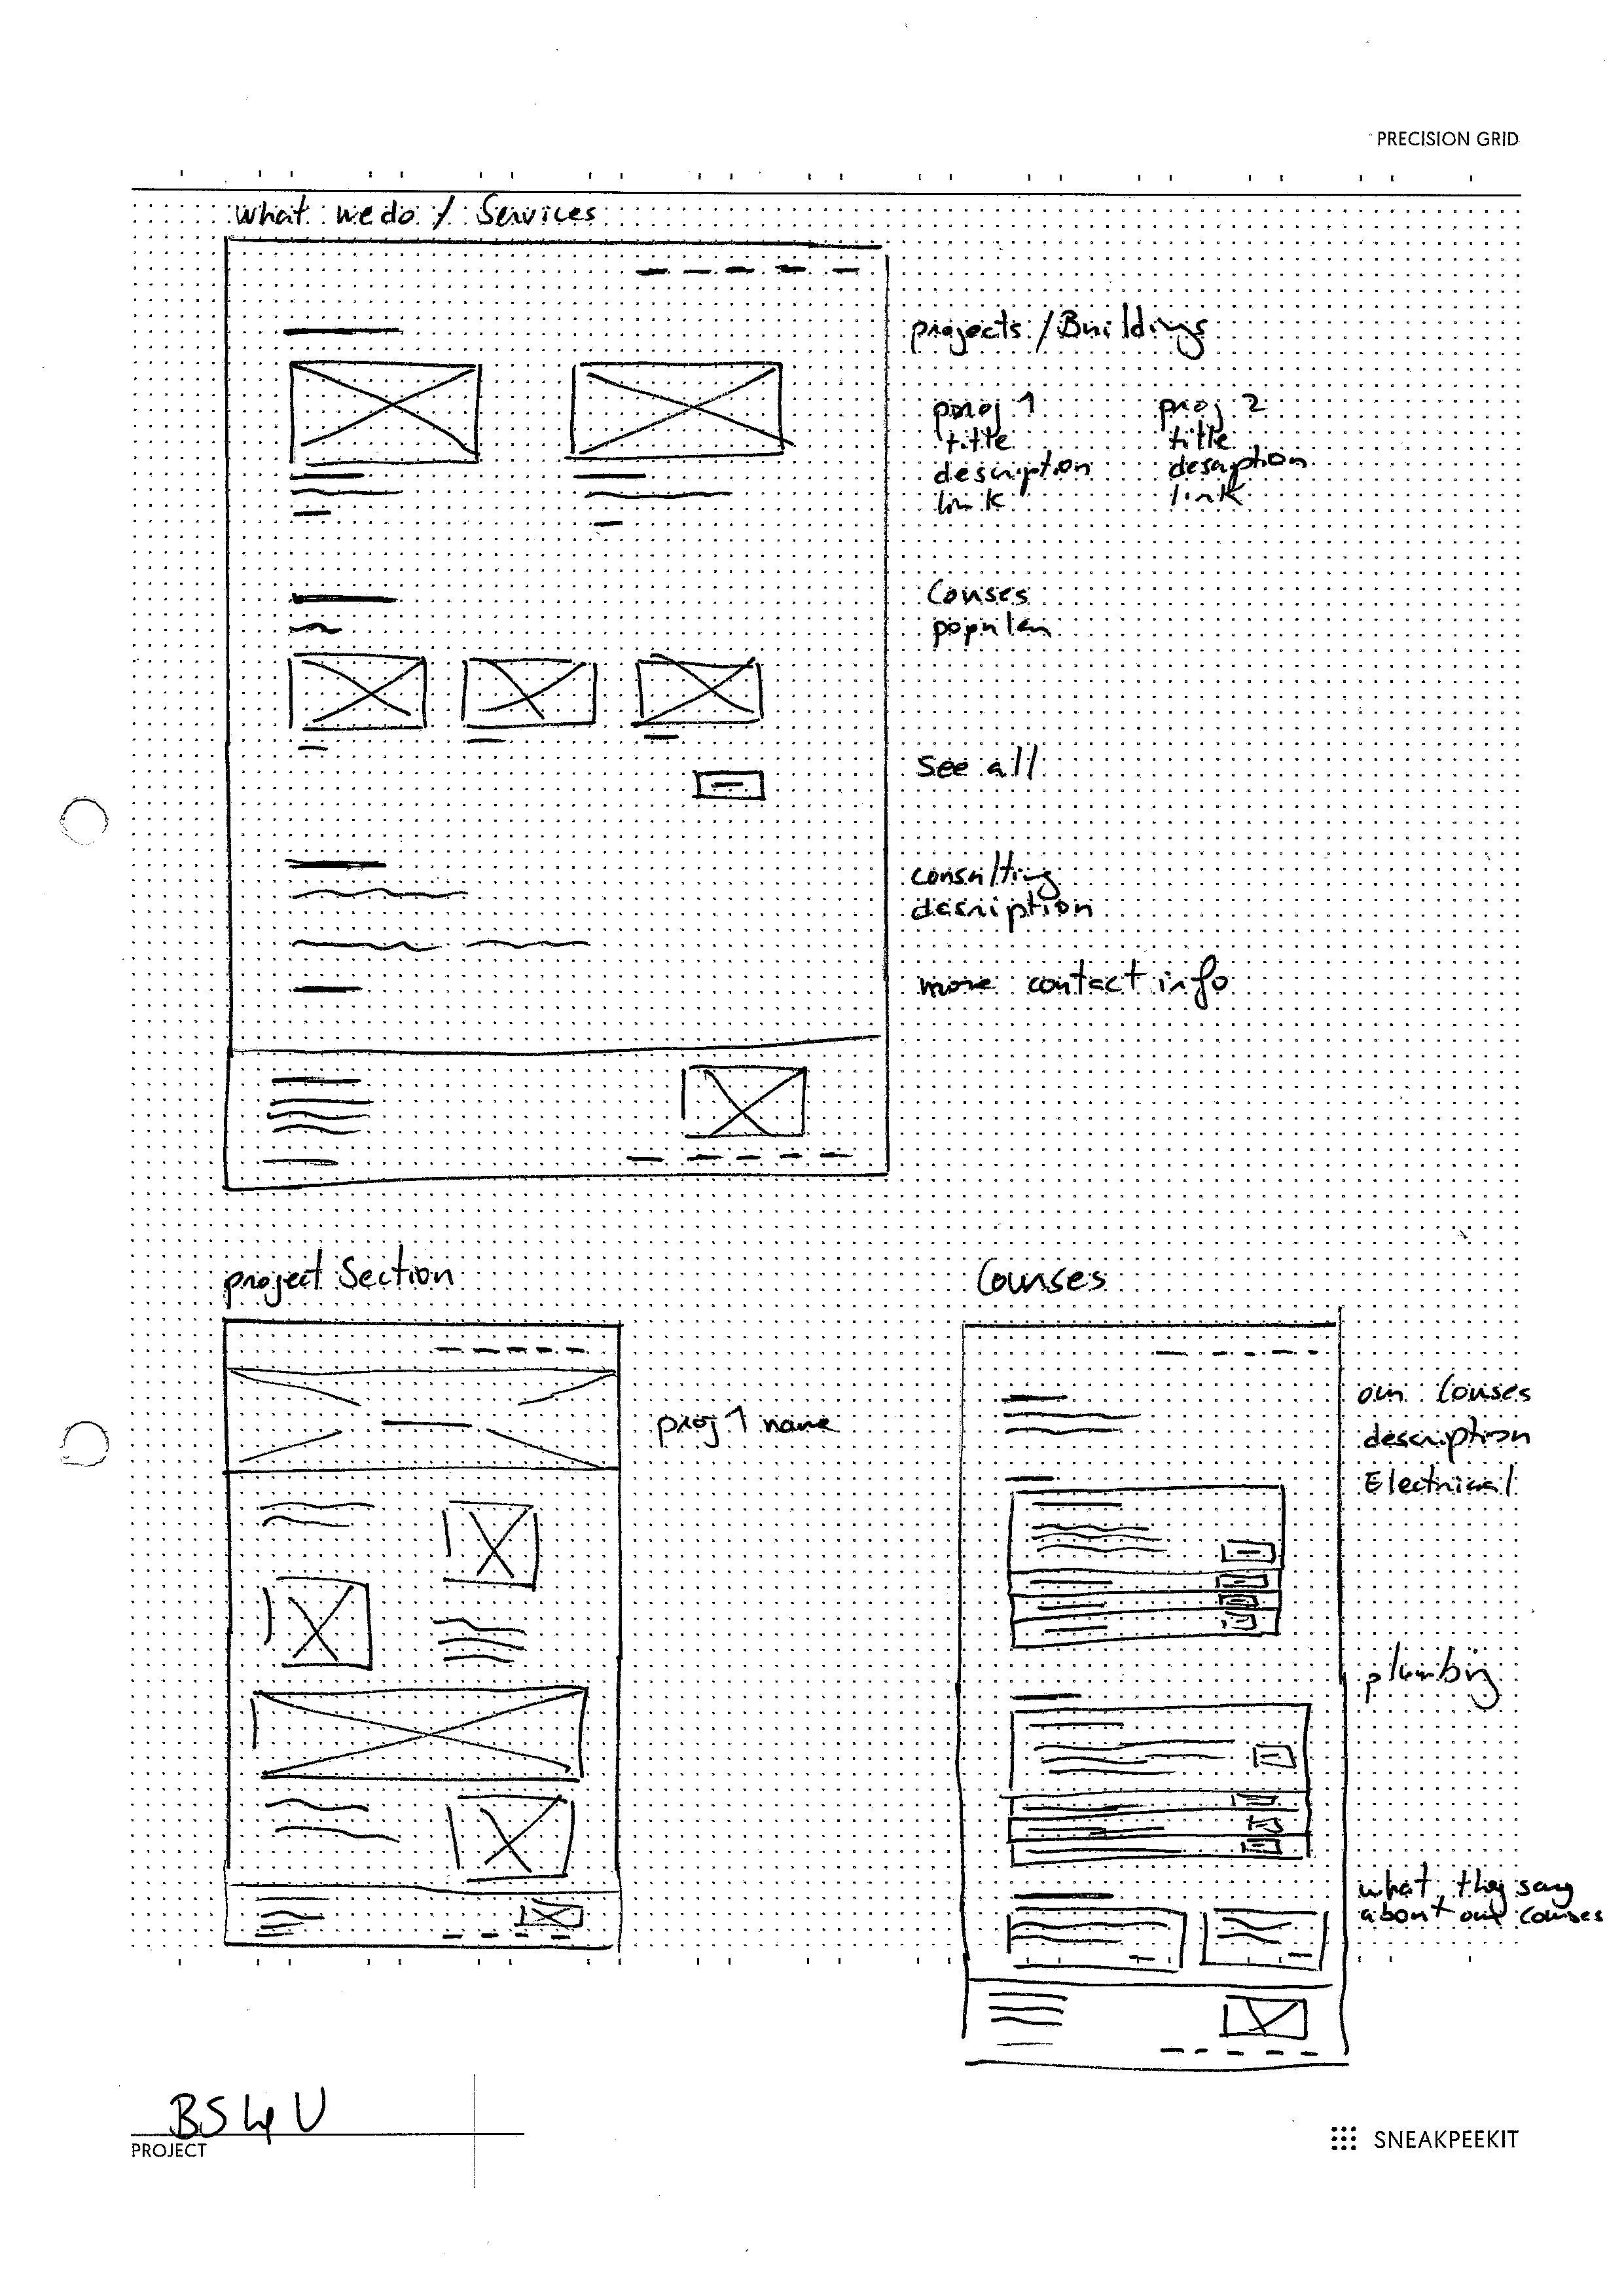 PRECISION GRID
what we do / Services
projects / Buildings
proj 1 proj 2
title title
description description
link link
Courses
popular
see all
consulting
description
more contact info
project Section
Courses
proj 1 name
our Courses
description
Electrical
plumbing
what they say
about our courses
BS4U
PROJECT
SNEAKPEEKIT